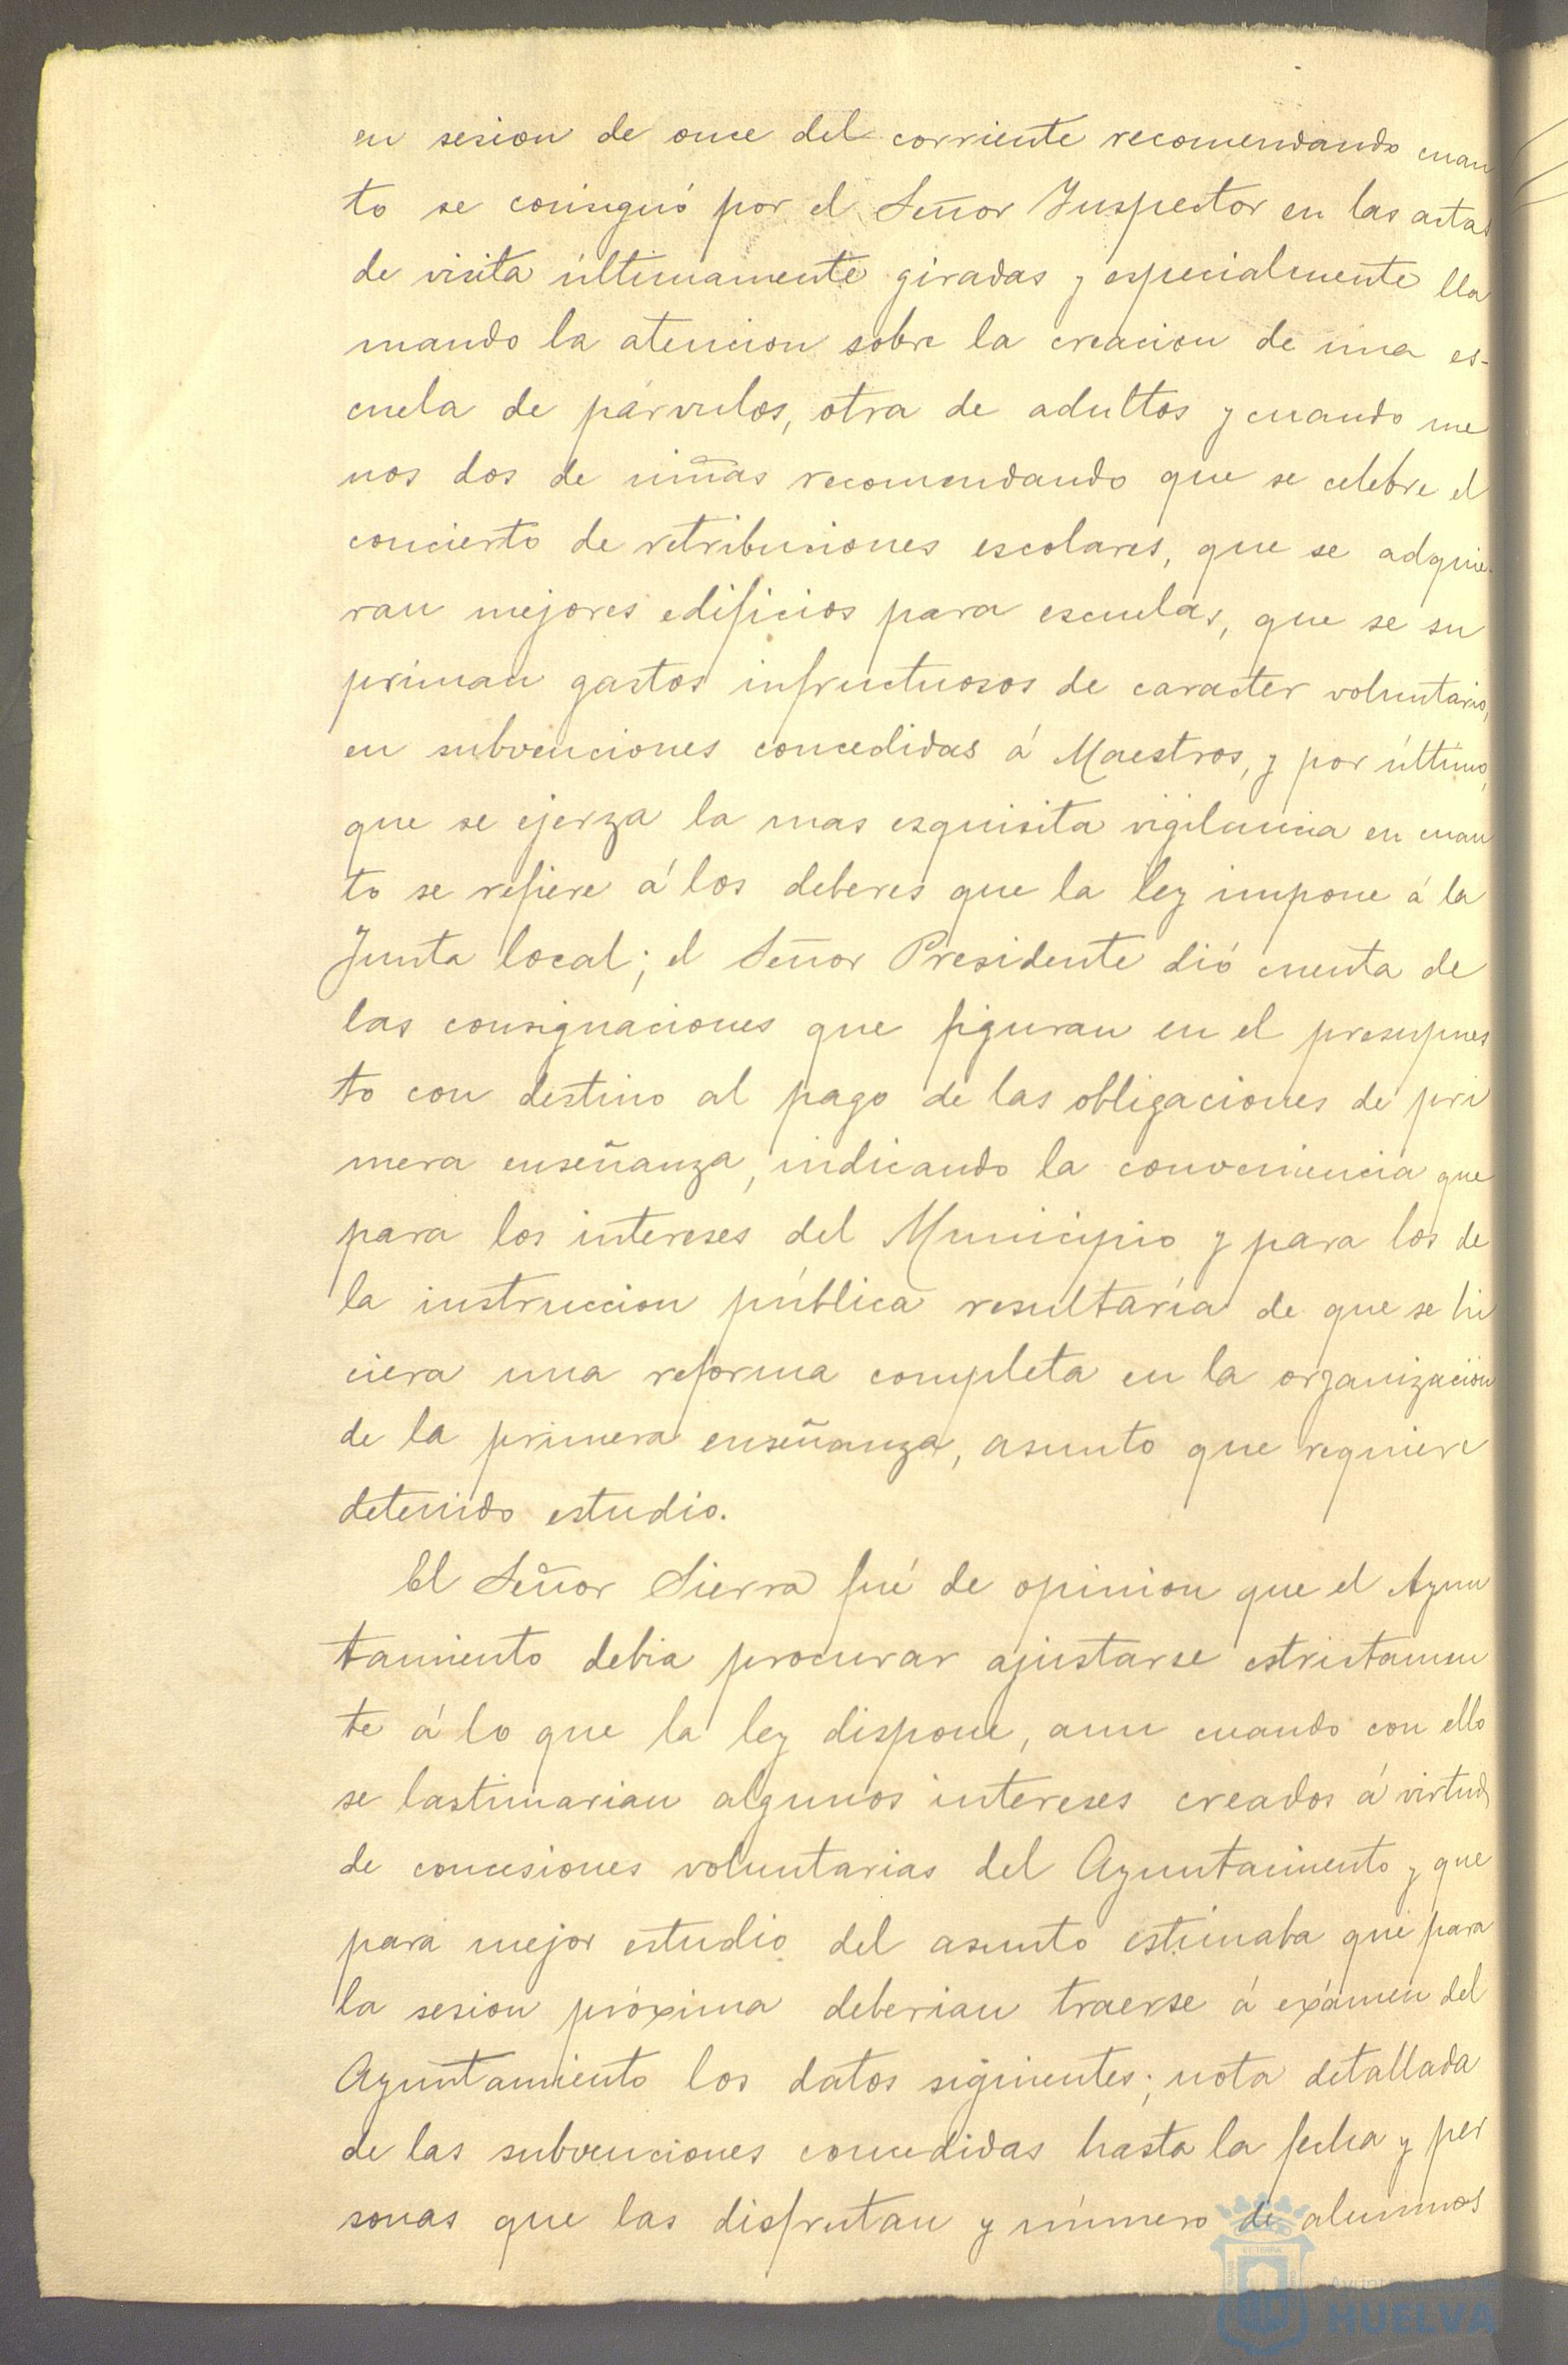 en sesion de once del corriente recomendando cuan
to se consignó por el Señor Inspector en las actas
de visita últimamente giradas y especialmente lla
mando la atencion sobre la creacion de una es-
cuela de párvulos, otra de adultos y cuando me
nos dos de niñas recomendando que se celebre el
concierto de retribuciones escolares, que se adquie-
ran mejores edificios para escuelas, que se su
priman gastos infructuosos de caracter voluntario,
en subvenciones concedidas á Maestros, y por último,
que se ejerza la mas esquisita vigilancia en cuan
to se refiere á los deberes que la ley impone á la
Junta local; el Señor Presidente dió cuenta de
las consignaciones que figuran en el presupues
to con destino al pago de las obligaciones de pri
mera enseñanza, indicando la conveniencia que
para los intereses del Municipio y para los de
la instruccion pública resultaría de que se hi
ciera una reforma completa en la organizacion
de la primera enseñanza, asunto que requiere
detenido estudio.
El Señor Sierra fué de opinion que el Ayun
tamiento debia procurar ajustarse estrictamen
te á lo que la ley dispone, aun cuando con ello
se lastimarian algunos intereses creados á virtud
de concesiones voluntarias del Ayuntamiento y que
para mejor estudio del asunto estimaba que para
la sesion próxima deberian traerse á exámen del
Ayuntamiento los datos siguientes; nota detallada
de las subvenciones concedidas hasta la fecha y per
sonas que las disfrutan y número de alumnos
HUELVA